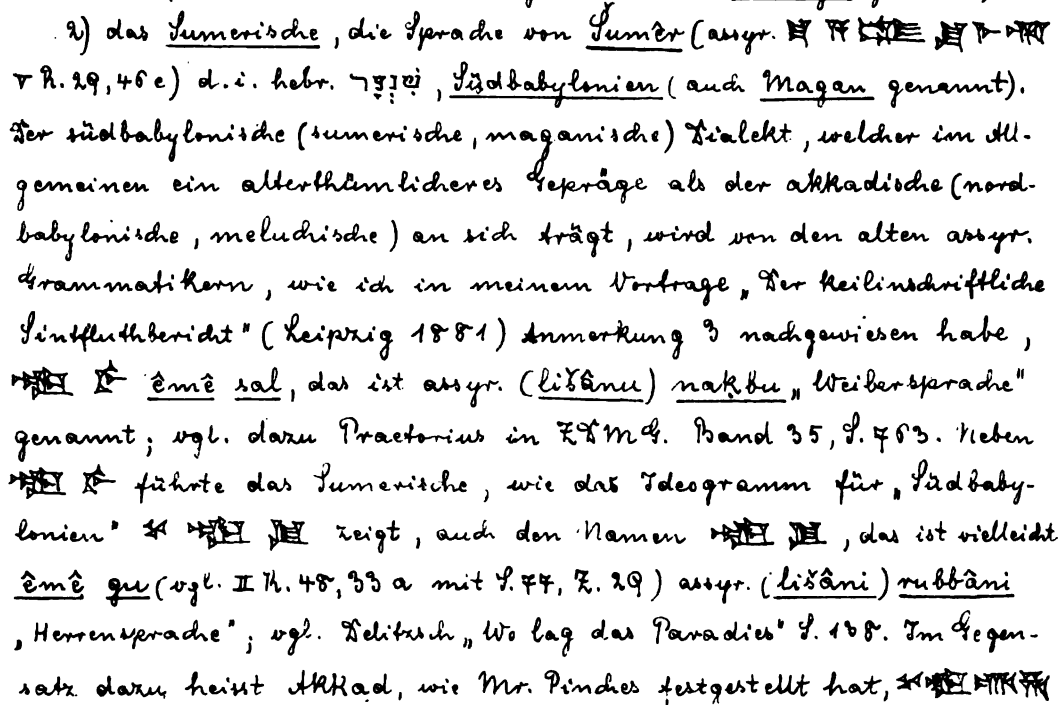 2) das Sumerische, die Sprache von Šumêr (assyr.
V R. 29, 46 e) d. i. hebr. שִׁנְעָר, Südbabylonien (auch Magan genannt).
Der südbabylonische (sumerische, maganische) Dialekt, welcher im All-
gemeinen ein alterthümlicheres Gepräge als der akkadische (nord-
babylonische, meluchische) an sich trägt, wird von den alten assyr.
Grammatikern, wie ich in meinem Vortrage „Der keilinschriftliche
Sintfluthbericht" (Leipzig 1881) Anmerkung 3 nachgewiesen habe,
êmê sal, das ist assyr. (lišânu) naḳbu „Weibersprache"
genannt; vgl. dazu Praetorius in ZDMG. Band 35, S. 763. Neben
führte das Sumerische, wie das Ideogramm für „Südbaby-
lonien" zeigt, auch den Namen , das ist vielleicht
êmê gu (vgl. II R. 48, 33 a mit S. 77, Z. 29) assyr. (lišâni) rubbâni
„Herrensprache"; vgl. Delitzsch „Wo lag das Paradies" S. 138. Im Gegen-
satz dazu heisst Akkad, wie Mr. Pinches festgestellt hat,